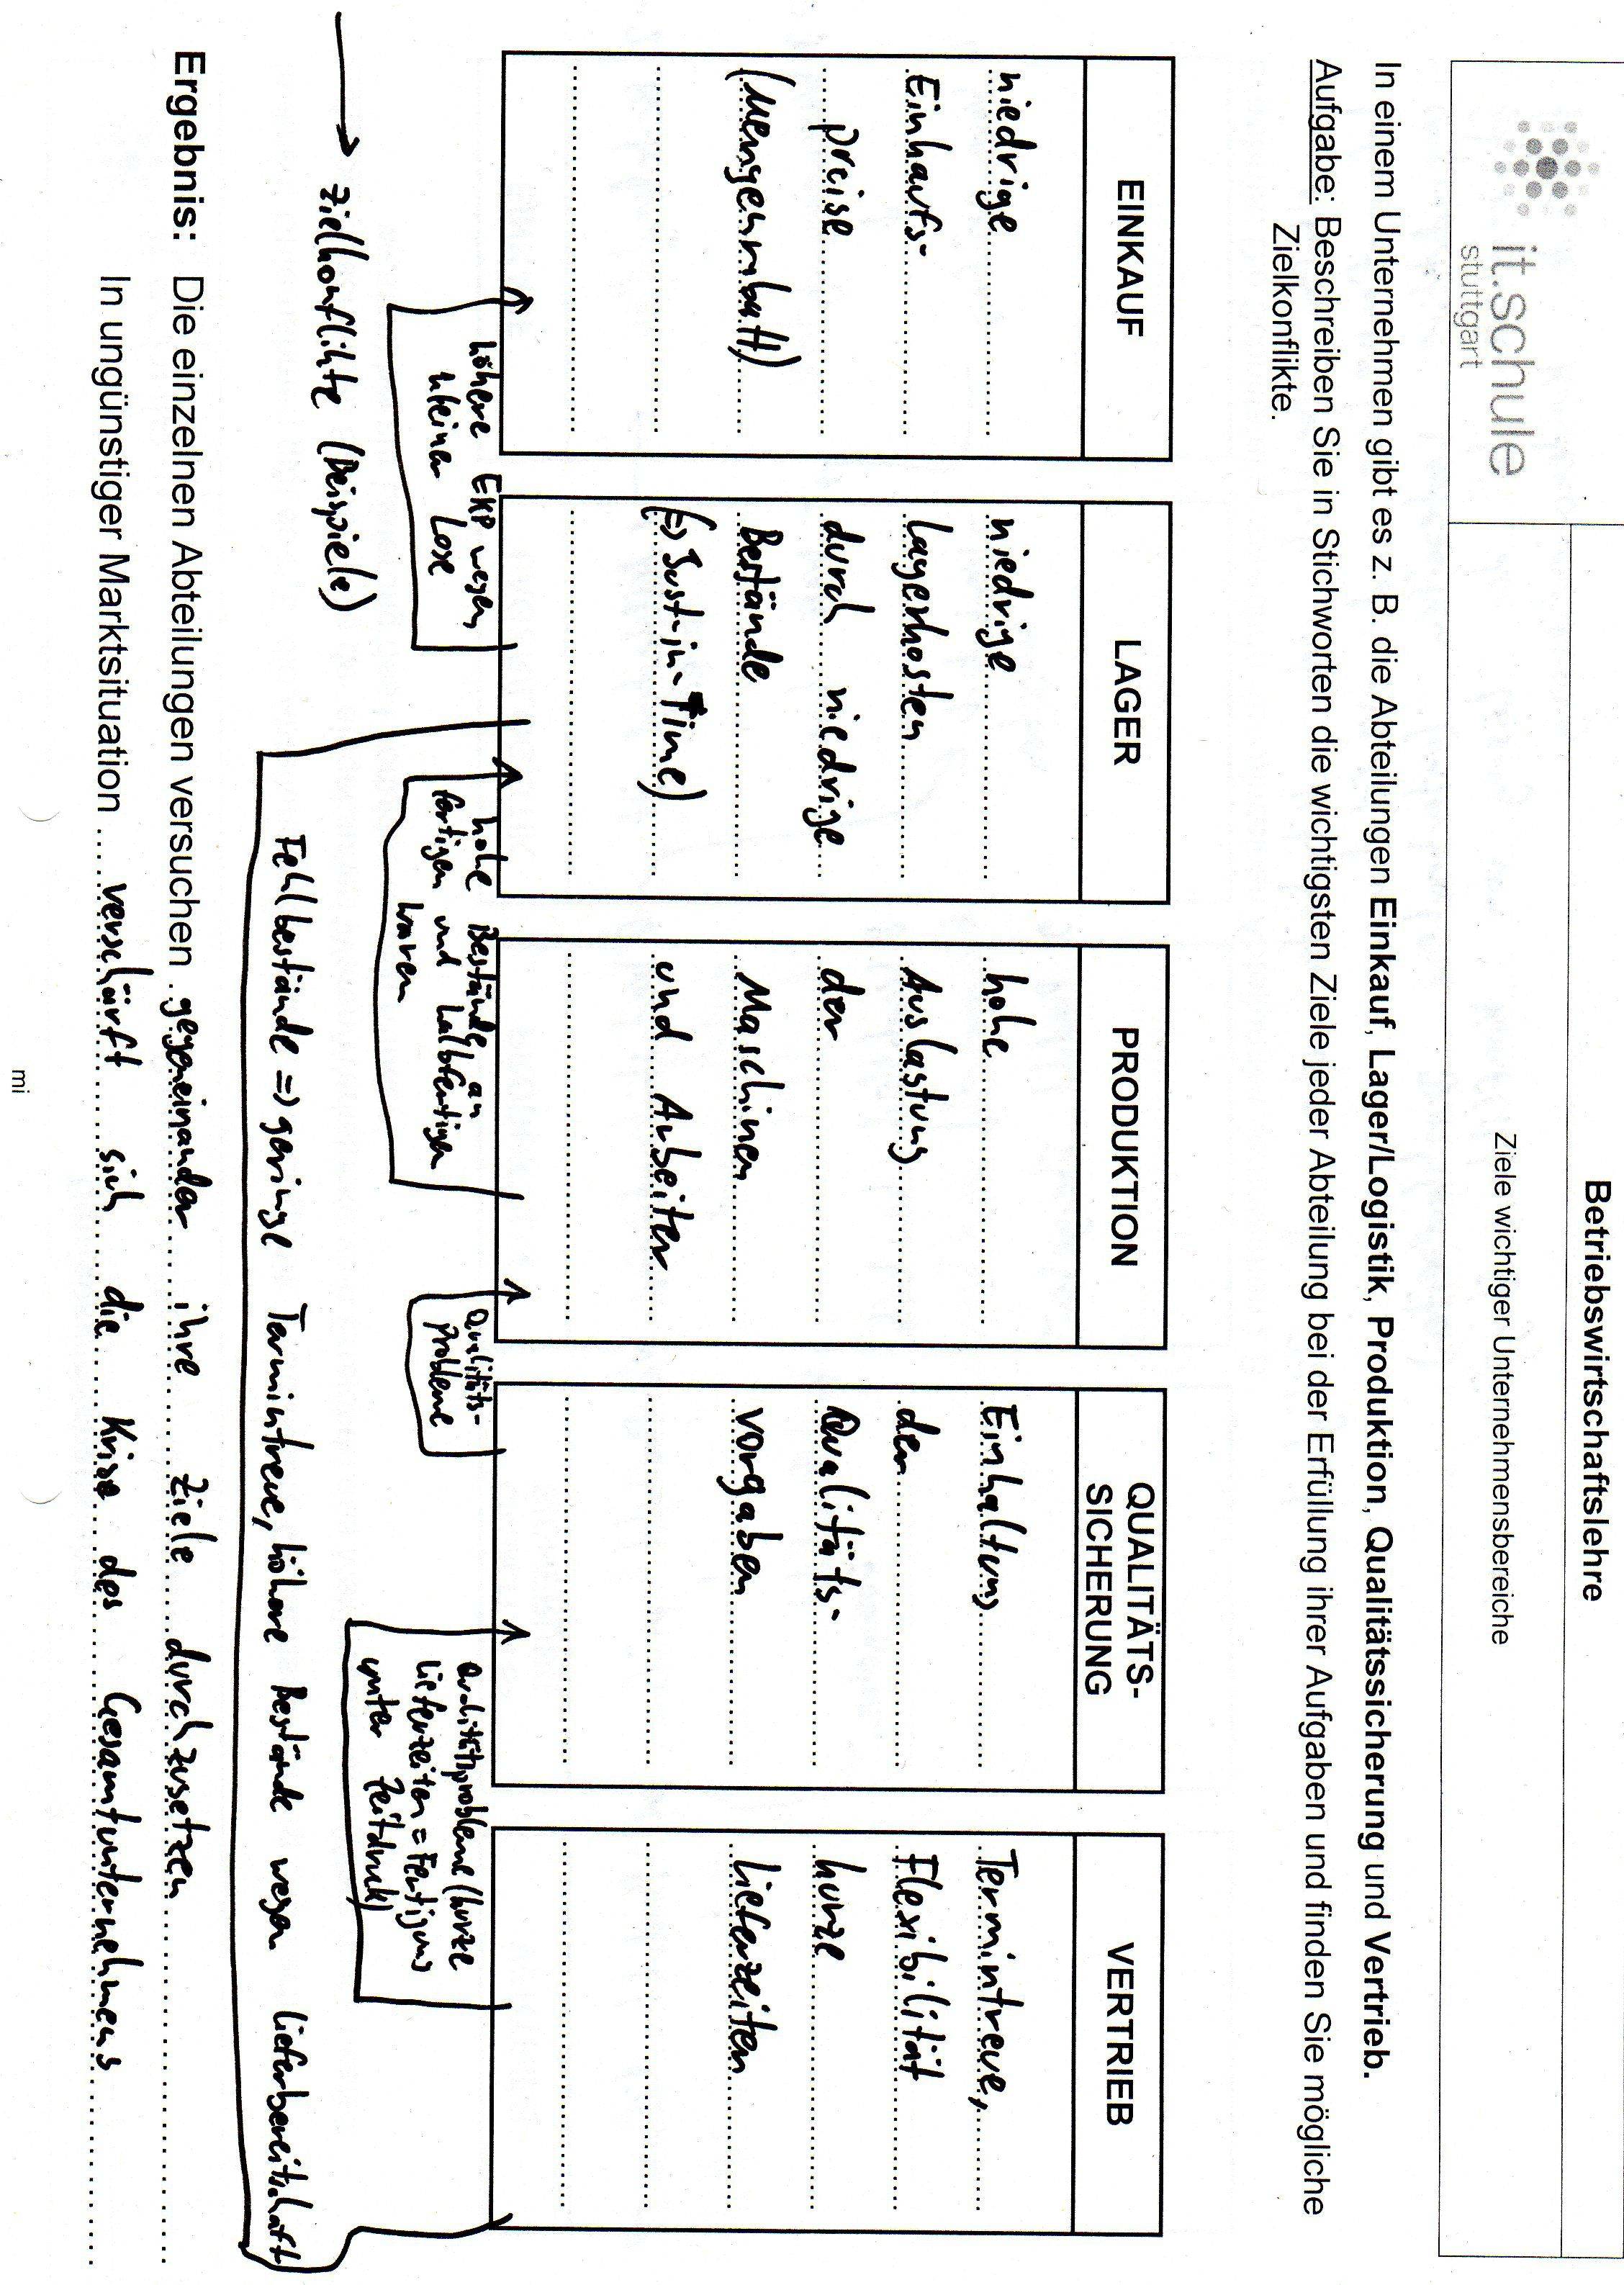 it.schule
stuttgart
Betriebswirtschaftslehre
Ziele wichtiger Unternehmensbereiche
In einem Unternehmen gibt es z. B. die Abteilungen Einkauf, Lager/Logistik, Produktion, Qualitätssicherung und Vertrieb.
Aufgabe: Beschreiben Sie in Stichworten die wichtigsten Ziele jeder Abteilung bei der Erfüllung ihrer Aufgaben und finden Sie mögliche
Zielkonflikte.
EINKAUF
niedrige
Einkaufs-
preise
(Mengenrabatt)
LAGER
niedrige
Lagerkosten
durch niedrige
Bestände
(=> Just-in-Time)
PRODUKTION
hohe
Auslastung
der
Maschinen
und Arbeiter
QUALITÄTS-
SICHERUNG
Einhaltung
der
Qualitäts-
vorgaben
VERTRIEB
Termintreue,
Flexibilität
kurze
Lieferzeiten
höhere EKP wegen
kleiner Lose
hohe Bestände an
fertigen und halbfertigen
Waren
Qualitäts-
probleme
Qualitätsprobleme (kurze
Lieferzeiten = Fertigung
unter Zeitdruck)
→ Zielkonflikte (Beispiele)
Fehlbestände => geringe Termintreue, höhere Bestände wegen Lieferbereitschaft
Ergebnis: Die einzelnen Abteilungen versuchen gegeneinander ihre Ziele durchzusetzen
In ungünstiger Marktsituation verschärft sich die Krise des Gesamtunternehmens
mi